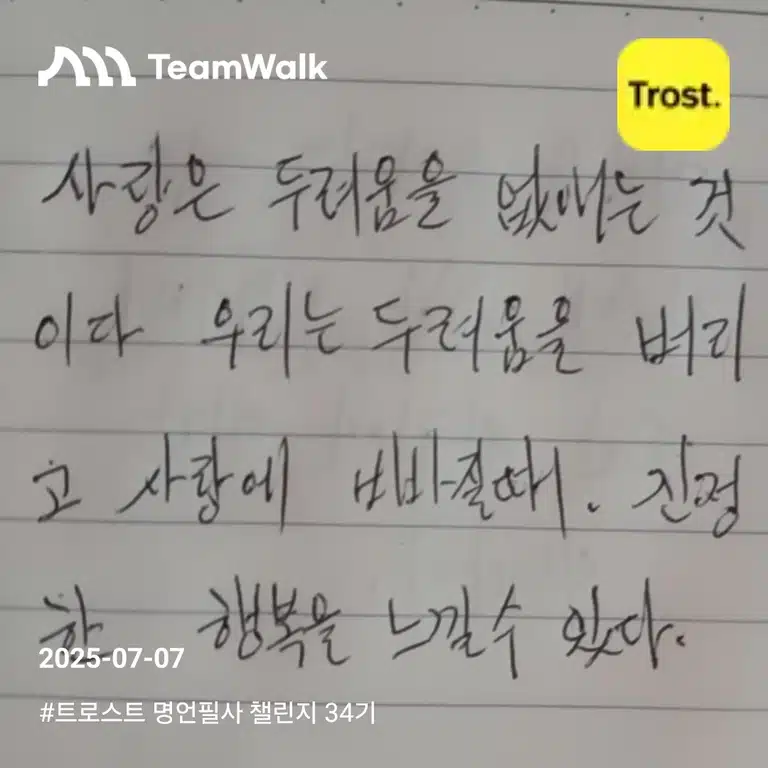 TeamWalk
Trost.
사랑은 두려움을 없애는 것
이다 우리는 두려움을 버리
고 사랑에 빠질때. 진정
한 행복을 느낄수 있다.
2025-07-07
#트로스트 명언필사 챌린지 34기